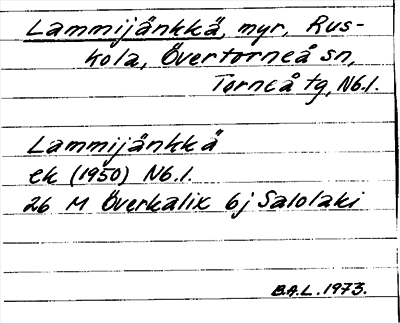 Lammijänkkä, myr, Rus-
kola, Övertorneå sn,
Torneå tg, Nb.l.
Lammijänkkä
ek (1950) Nb.l.
26 M Överkalix 6j Salolaki
B.A.L. 1973.